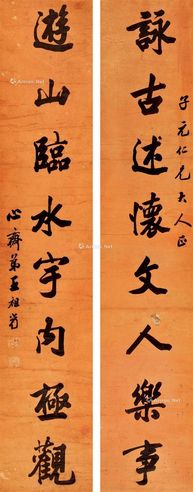 詠古述懷文人樂事
子元仁兄大人正
遊山臨水宇内極觀
心齋弟王祖